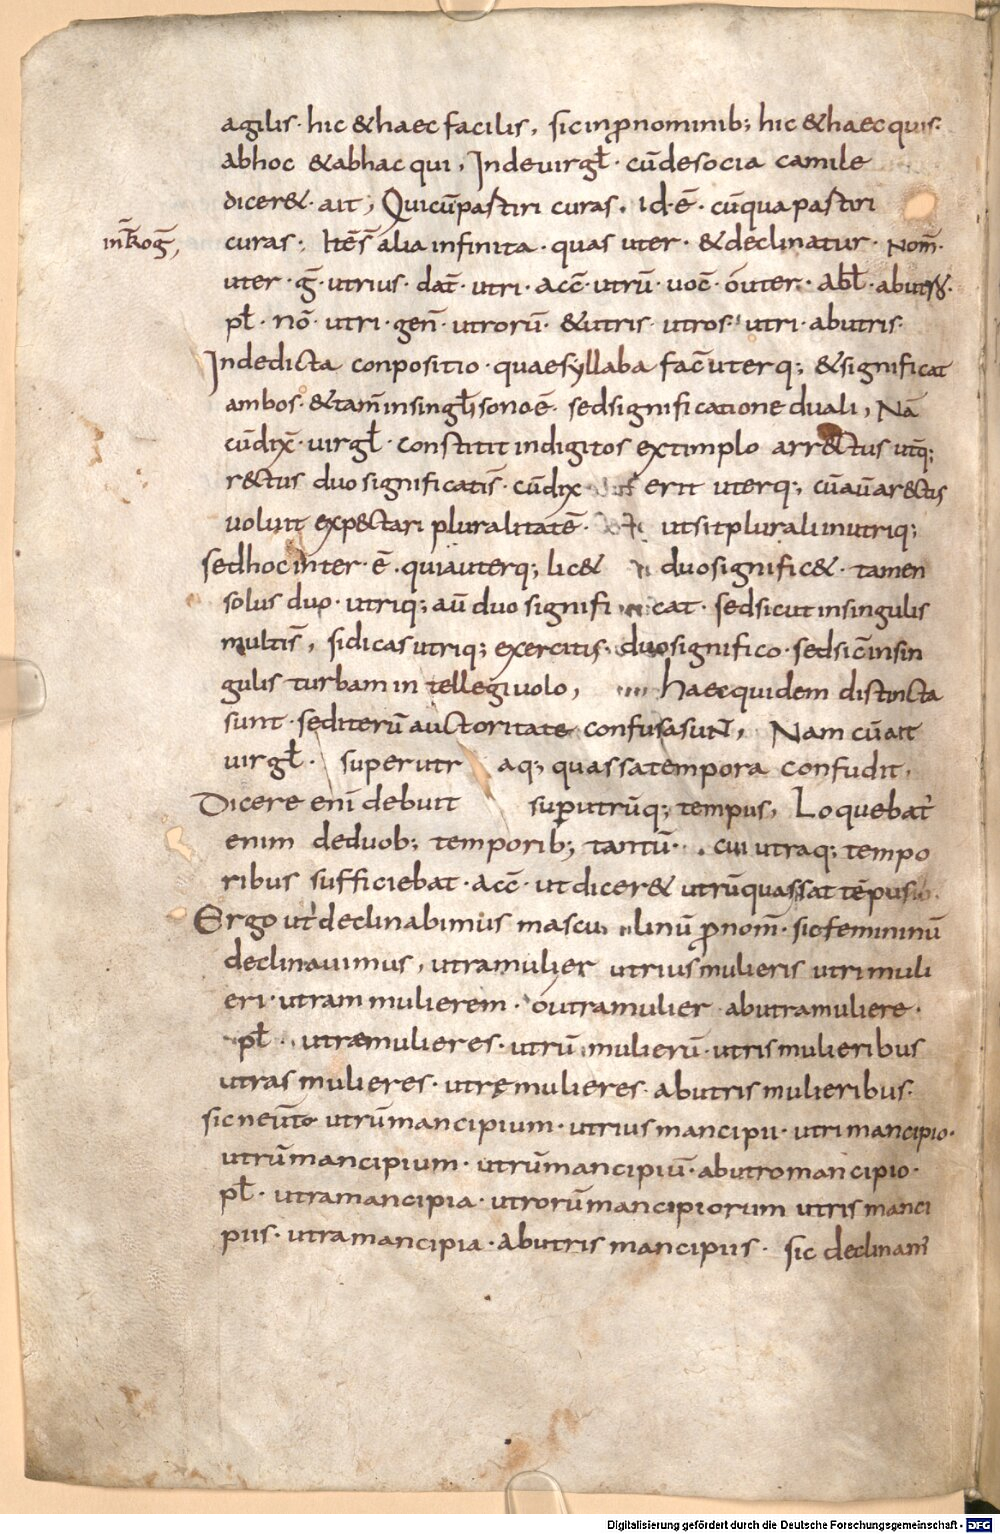 agilis · hic & haec facilis, sic in p̄nominib; hic & haec quis·
ab hoc & ab hac qui, Inde virgl̄ · cū de socia camile
dicer& · ait; Quicū pastiri curas. id· ē· cū qua pastiri
int̄rog̅,
curas; It̄ē s̄ alia infinita · quas uter · & declinatur · nom̄·
uter · g̅ · utrius · dat̄ · utri · acc̄ · utrū · uoc̄ · ó uter · abl̄ · ab
pl̄ · nō · utri · gen̄ · utrorū · & utris · utros · utri · ab utris·
Inde dicta conpositio · quae syllaba fac̄ uterq; & significat
ambos · & tam̄ in singl̄i sono ē · sed significatione duali, Nā
cū dix̄ · virgl̄ · constitit indigitos extimplo arr&ctus utq̄;
r&ctus duo significatis̄ · cū dix̄ erit uterq; cū aū ar&ctis
voluit exp&ctari pluralitatē · ut sit plurali in utriq;
sed hoc inter · ē · quia uterq; lic& duo signific& · tamen
solus duo · utriq; aū duo signifi cat · sed sicut in singulis
multis̄, si dicas utriq; exercitis · duo significo · sed sic̄ in sin
gulis turbam in tellegi volo, haec quidem distincta
sunt · sed iterū auctoritate confusa sun̄t, Nam cū ait
virgl̄ · super utr aq; quassa tempora confudit,
Dicere enī debuit sup̄ utrūq; tempus, Loquebat̄
enim de duob; temporib; tantū · cui utraq; tempo
ribus sufficiebat · acc̄ · ut dicer& utrū quassat tēpus
Ergo ut declinabimus mascu linū p̄nom̄ · sic femininū
declinavimus, utra mulier utrius mulieris utri muli
eri · utram mulierem · ó utra mulier ab utra muliere·
pl̄ · utrae mulieres · utrū mulierū · utris mulieribus
utras mulieres · utrę mulieres · ab utris mulieribus·
sic neūt utrū mancipium · utrius mancipii · utri mancipio·
utrū mancipium · utrū mancipiū · ab utro mancipio·
pl̄ · utra mancipia · utrorū mancipiorum utris manci
piis · utra mancipia · ab utris mancipiis · sic declinam̄
Digitalisierung gefördert durch die Deutsche Forschungsgemeinschaft - DFG